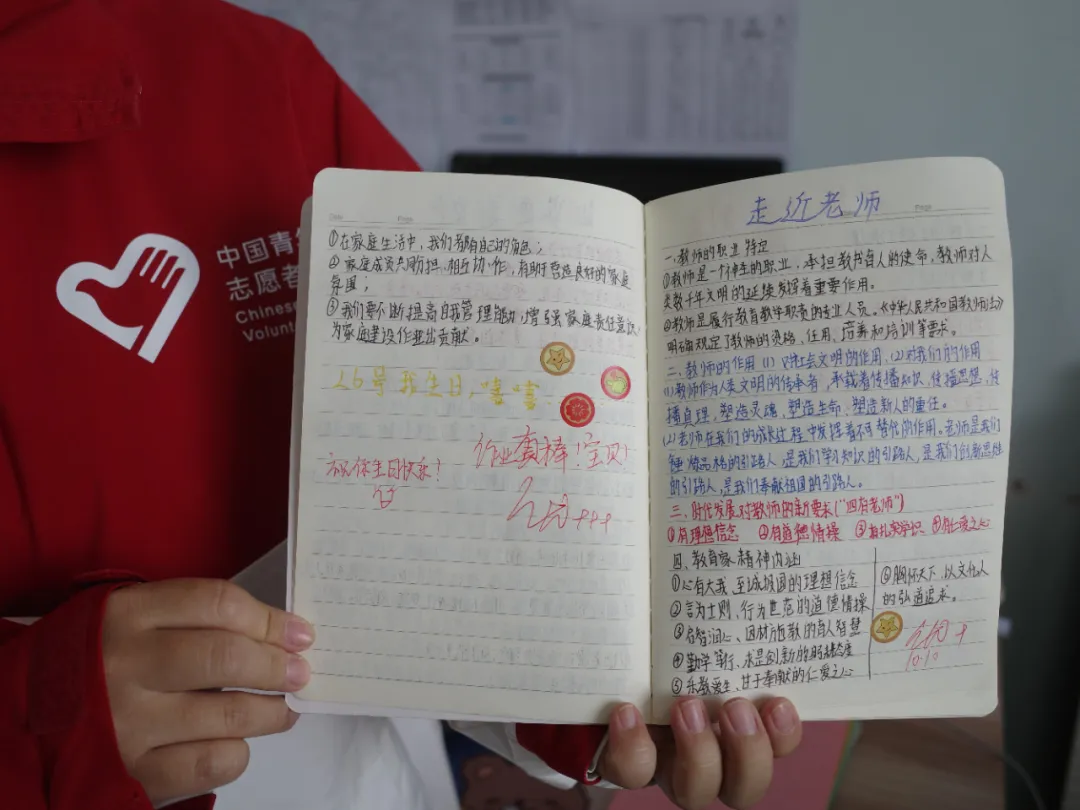 中国青
志愿者
Chinese
Volunt
Date
Page
①在家庭生活中，我们都有自己的角色；
②家庭成员共同分担、相互协作，有助于营造良好的家庭
氛围；
③我们要不断提高自我管理能力，增强家庭责任意识，
为家庭建设作出贡献。
26号我生日，嘻嘻
作业蛮棒！宝贝！
祝你生日快乐！
Page
走近老师
一、教师的职业特定
①教师是一个神圣的职业，承担教书育人的使命，教师对人
类数千年文明的延续发挥着重要作用。
②教师是履行教育教学职责的专业人员。《中华人民共和国教师法》
明确规定了教师的资格、任用、培养和培训等要求。
二、教师的作用（1）对社会文明的作用（2）对我们的作用
(1)教师作为人类文明的传承者，承载着传播知识、传播思想、传
播真理，塑造灵魂、塑造生命、塑造新人的重任。
(2)老师在我们的成长过程中发挥着不可替代的作用。老师是我们
锤炼品格的引路人，是我们学习知识的引路人，是我们创新思维
的引路人，是我们奉献祖国的引路人。
三、时代发展对教师的新要求（“四有老师”）
①有理想信念 ②有道德情操 ③有扎实学识 ④有仁爱之心
四、教育家精神内涵
①心有大我、至诚报国的理想信念
②言为士则、行为世范的道德情操
③启智润心、因材施教的育人智慧
④勤学笃行、求是创新的躬耕态度
⑤乐教爱生、甘于奉献的仁爱之心
⑥胸怀天下、以文化人
的弘道追求。
10.10